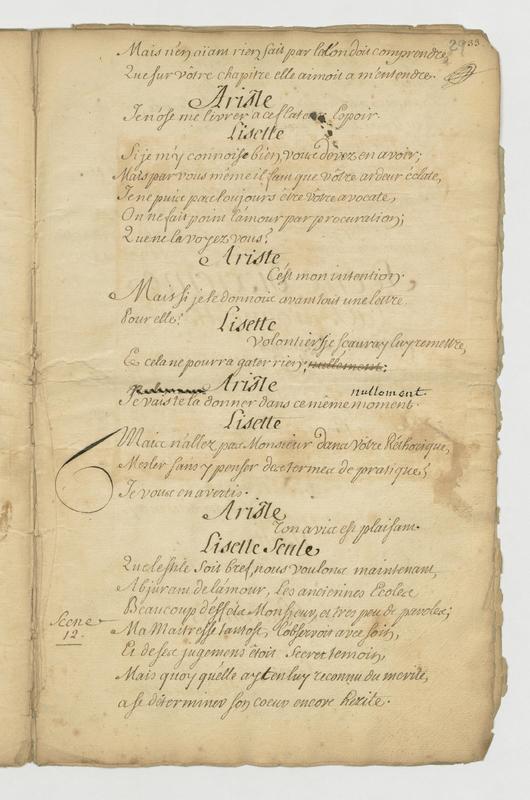 29 33
Mais n'en aïant rien fait par la l'on doit comprendre,
Que sur vôtre chapitre elle aimoit a m'entendre.
Ariste
Je n'ose me livrer a ce flateur Espoir.
Lisette
Si je m'y connoise bien, vous devez en avoir;
Mais par vous même il faut que vôtre ardeur éclate,
Je ne puis pas toujours être vôtre avocate,
On ne fait point l'amour par procuration;
Que ne la voyez vous?
Ariste
C'est mon intention.
Mais si je te donnois avant tout une lettre
Pour elle?
Lisette
Volontiers, je scauray luy remettre,
Et cela ne pourra gater rien; nullement;
Ariste
nullement.
Je vais te la donner dans ce même moment.
Lisette
Mais n'allez pas Monsieur dans Vôtre Rethorique,
Mesler sans y penser des termes de pratique;
Je vous en avertis.
Ariste
Ton avis est plaisant.
Lisette Seule
Que le stile soit bref, nous voulons maintenant,
Abjurant de l'amour, les anciennes Ecoles
Beaucoup d'effets Monsieur, et tres peu de paroles;
Scene
12.
Ma Maitresse tantost, l'observoit avec soin,
Et de ses jugemens étois Secret temoin,
Mais quoy qu'elle ayt en luy reconnu du merite,
a se déterminer son coeur encore hezite.